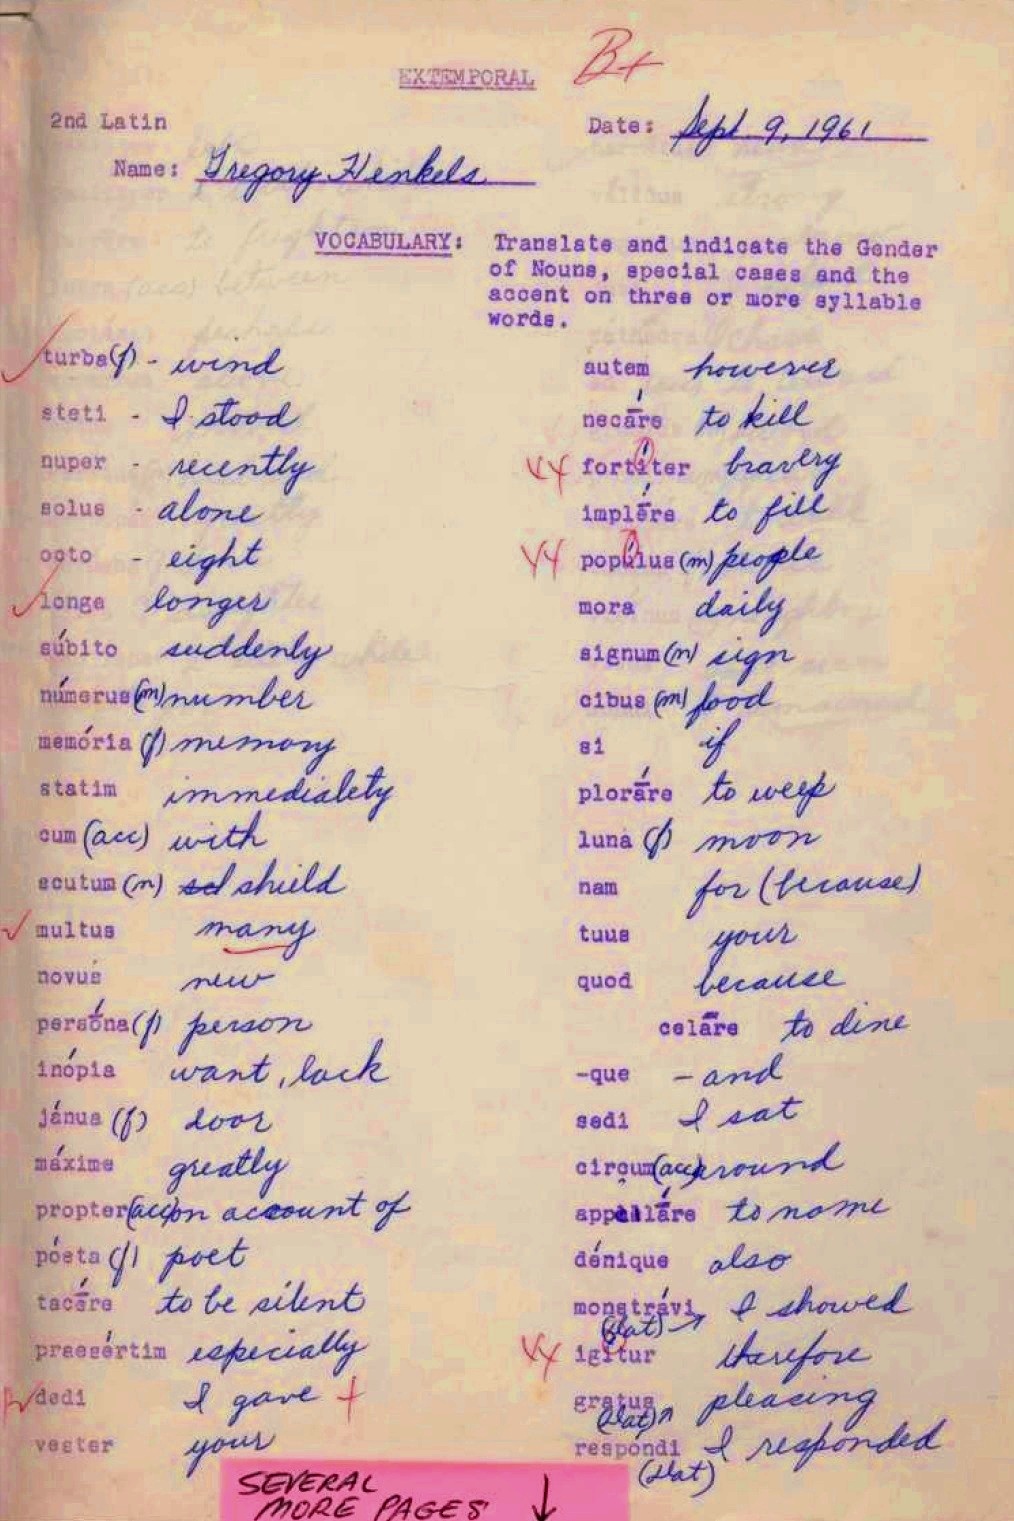 EXTEMPORAL B+
2nd Latin
Date: Sept. 9, 1961
Name: Gregory Henkels
VOCABULARY: Translate and indicate the Gender
of Nouns, special cases and the
accent on three or more syllable
words.
turba (f) - wind
steti - I stood
nuper - recently
solus - alone
octo - eight
longe longer
súbito suddenly
númerus (m) number
memória (f) memory
statim immedialety
cum (acc) with
scutum (n) shield
multus many
novus new
persṓna (f) person
inópia want, lack
jánua (f) door
máxime greatly
propter (acc) on account of
póeta (f) poet
tacḗre to be silent
praesértim especially
dedi I gave +
vester your
autem however
necā́re to kill
fortíter bravery
implḗre to fill
popúlus (m) people
mora daily
signum (n) sign
cibus (m) food
si if
plorā́re to weep
luna (f) moon
nam for (because)
tuus your
quod because
celāre to dine
-que - and
sedi I sat
circum (acc) around
appellā́re to name
dénique also
monstrávi I showed
(dat)
igítur therefore
gratus pleasing
(dat)
respondi I responded
(dat)
SEVERAL
MORE PAGES ↓